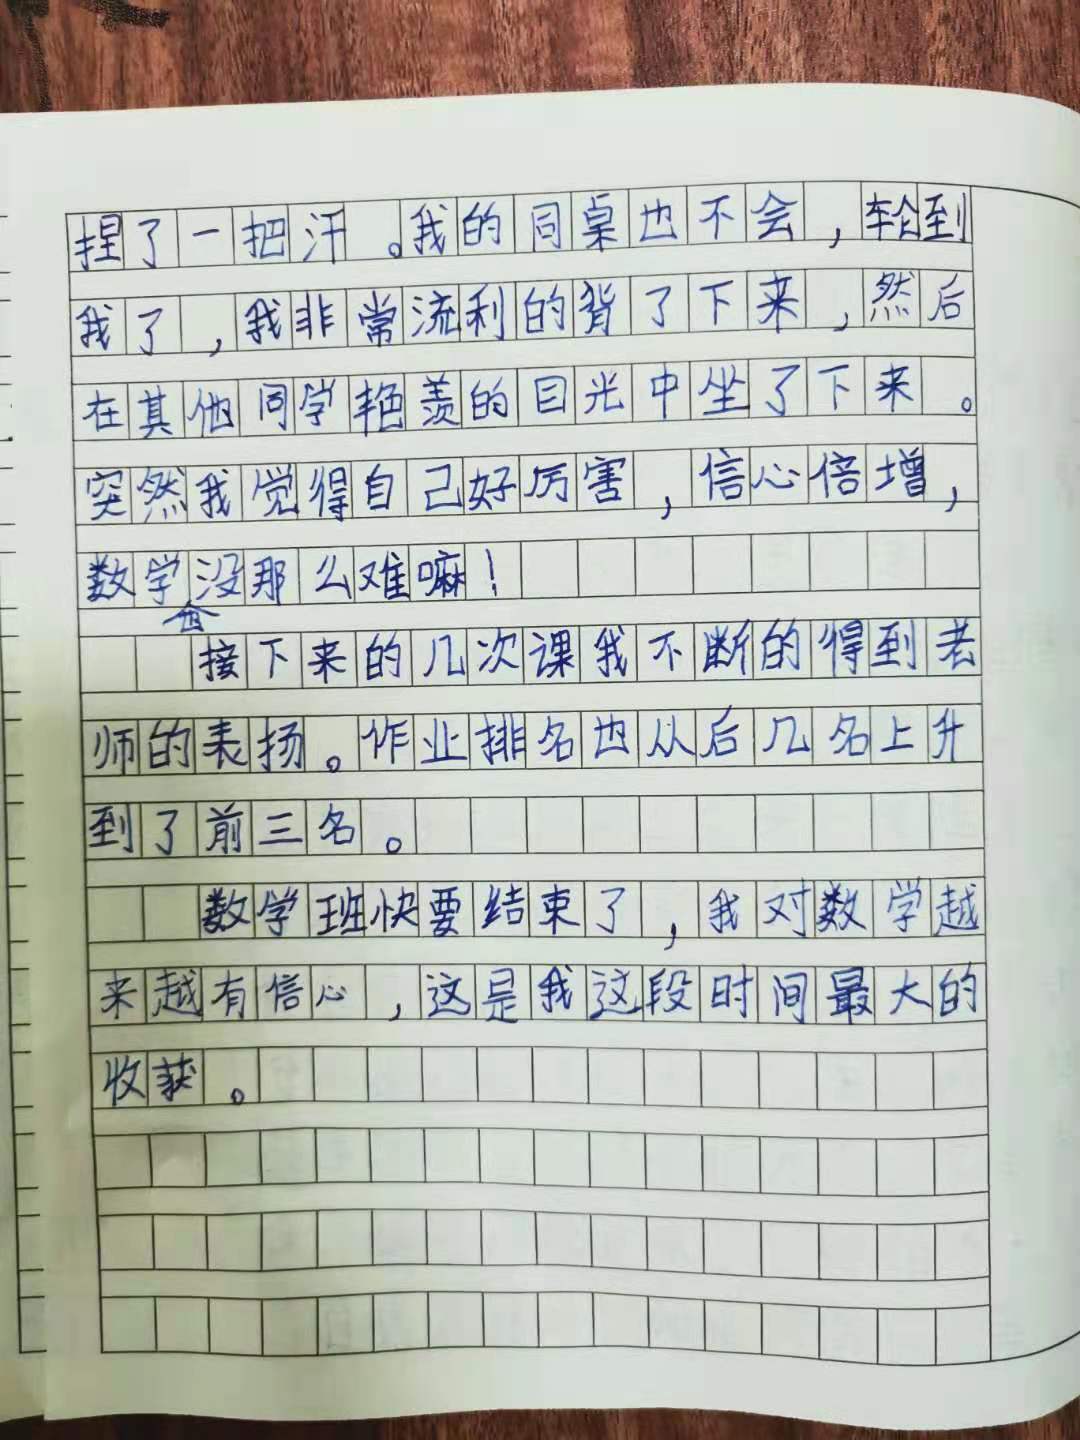 捏了一把汗。我的同桌也不会，轮到
我了，我非常流利的背了下来，然后
在其他同学艳羡的目光中坐了下来。
突然我觉得自己好厉害，信心倍增，
数学没那么难嘛！
接下来的几次课我不断的得到老
师的表扬。作业排名也从后几名上升
到了前三名。
数学班快要结束了，我对数学越
来越有信心，这是我这段时间最大的
收获。